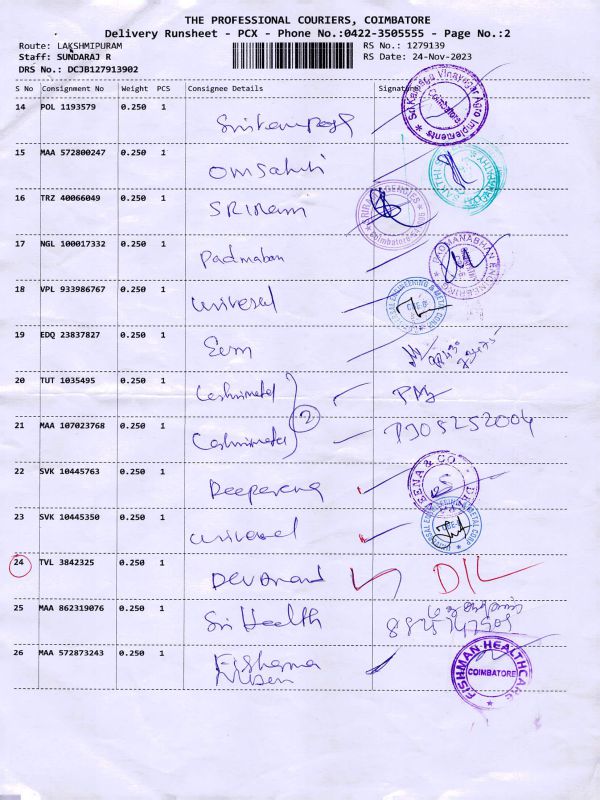 THE PROFESSIONAL COURIERS, COIMBATORE
Delivery Runsheet - PCX - Phone No.:0422-3505555 - Page No.:2
Route: LAKSHMIPURAM RS No.: 1279139
Staff: SUNDARAJ R RS Date: 24-Nov-2023
DRS No.: DCJB127913902
S No Consignment No Weight PCS Consignee Details Signature
14 POL 1193579 0.250 1
Coimbatore
15 MAA 572800247 0.250 1 Omsakthi
16 TRZ 40066049 0.250 1 SRIRam
17 NGL 100017332 0.250 1 Padmaban
18 VPL 933986767 0.250 1 universal
19 EDQ 23837827 0.250 1
20 TUT 1035495 0.250 1
2
21 MAA 107023768 0.250 1
22 SVK 10445763 0.250 1
23 SVK 10445350 0.250 1 universal
24 TVL 3842325 0.250 1 Devanand DIL
25 MAA 862319076 0.250 1 Sri Health
26 MAA 572873243 0.250 1
FISHMAN HEALTHCARE
COIMBATORE